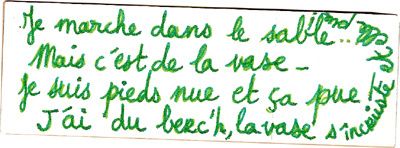 Je marche dans le sable..
Mais c'est de la vase _
Je suis pieds nue et ça pue !
J'ai du berc'h, la vase s'incruste